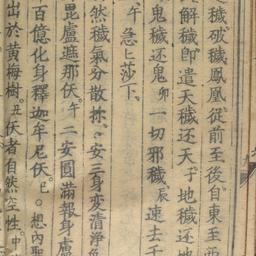 穢破穢鳳凰從前至後自東至西
解穢即遣天穢还天子地穢还地
鬼穢还鬼卯一切邪穢辰速去千
午急匕莎下
然穢氣分散𥙿匕安三身變清淨
毘盧遮那伏午二安圓滿報身盧
百億化身釋迦牟尼伏巳○想內聖
出於黃梅樹丑伏者自然空性中